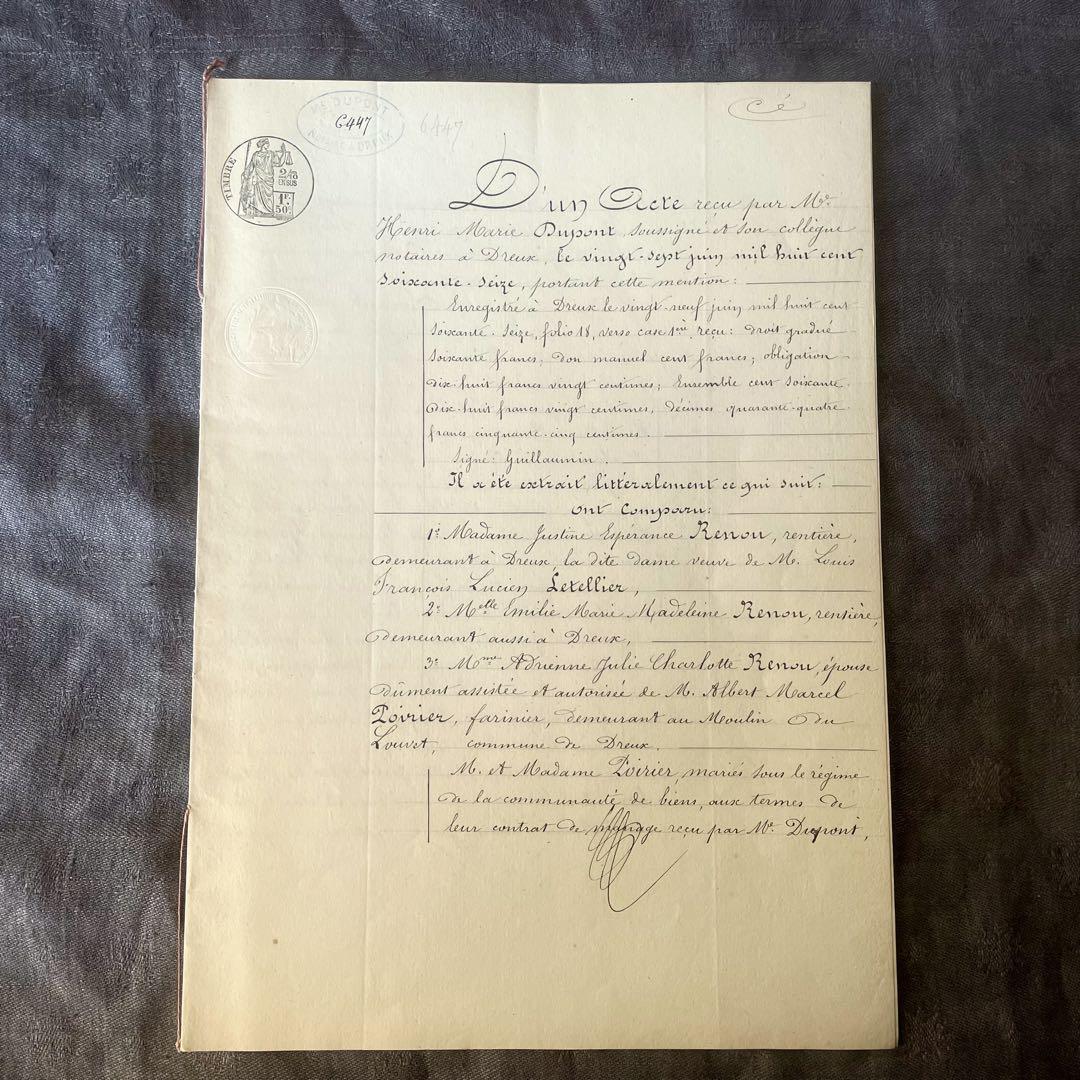 Me DUPONT
6447
NOTAIRE A DREUX
6447
cé
TIMBRE
2/10
EN SUS
1F.
50c.
D'un Acte reçu par Me
Henri Marie Dupont, soussigné et son collègue
notaires à Dreux, le vingt-sept juin mil huit cent
soixante-seize, portant cette mention:
Enregistré à Dreux le vingt-neuf juin mil huit cent
soixante-seize, folio 18, verso case 1ère, reçu: droit gradué
soixante francs; don manuel cent francs; obligation
dix-huit francs vingt centimes; Ensemble cent soixante-
dix-huit francs vingt centimes, décimes quarante-quatre
francs cinquante-cinq centimes.
Signé: Guillaumin.
Il a été extrait littéralement ce qui suit:
Ont Comparu:
1º Madame Justine Espérance Renou, rentière,
demeurant à Dreux, la dite dame veuve de M. Louis
François Lucien Letellier,
2º Melle Emilie Marie Madeleine Renou, rentière,
demeurant aussi à Dreux,
3º Mme Adrienne Julie Charlotte Renou, épouse
dûment assistée et autorisée de M. Albert Marcel
Poirier, farinier, demeurant au Moulin du
Louvet, commune de Dreux.
M. et Madame Poirier, mariés sous le régime
de la communauté de biens, aux termes de
leur contrat de mariage reçu par Me Dupont,